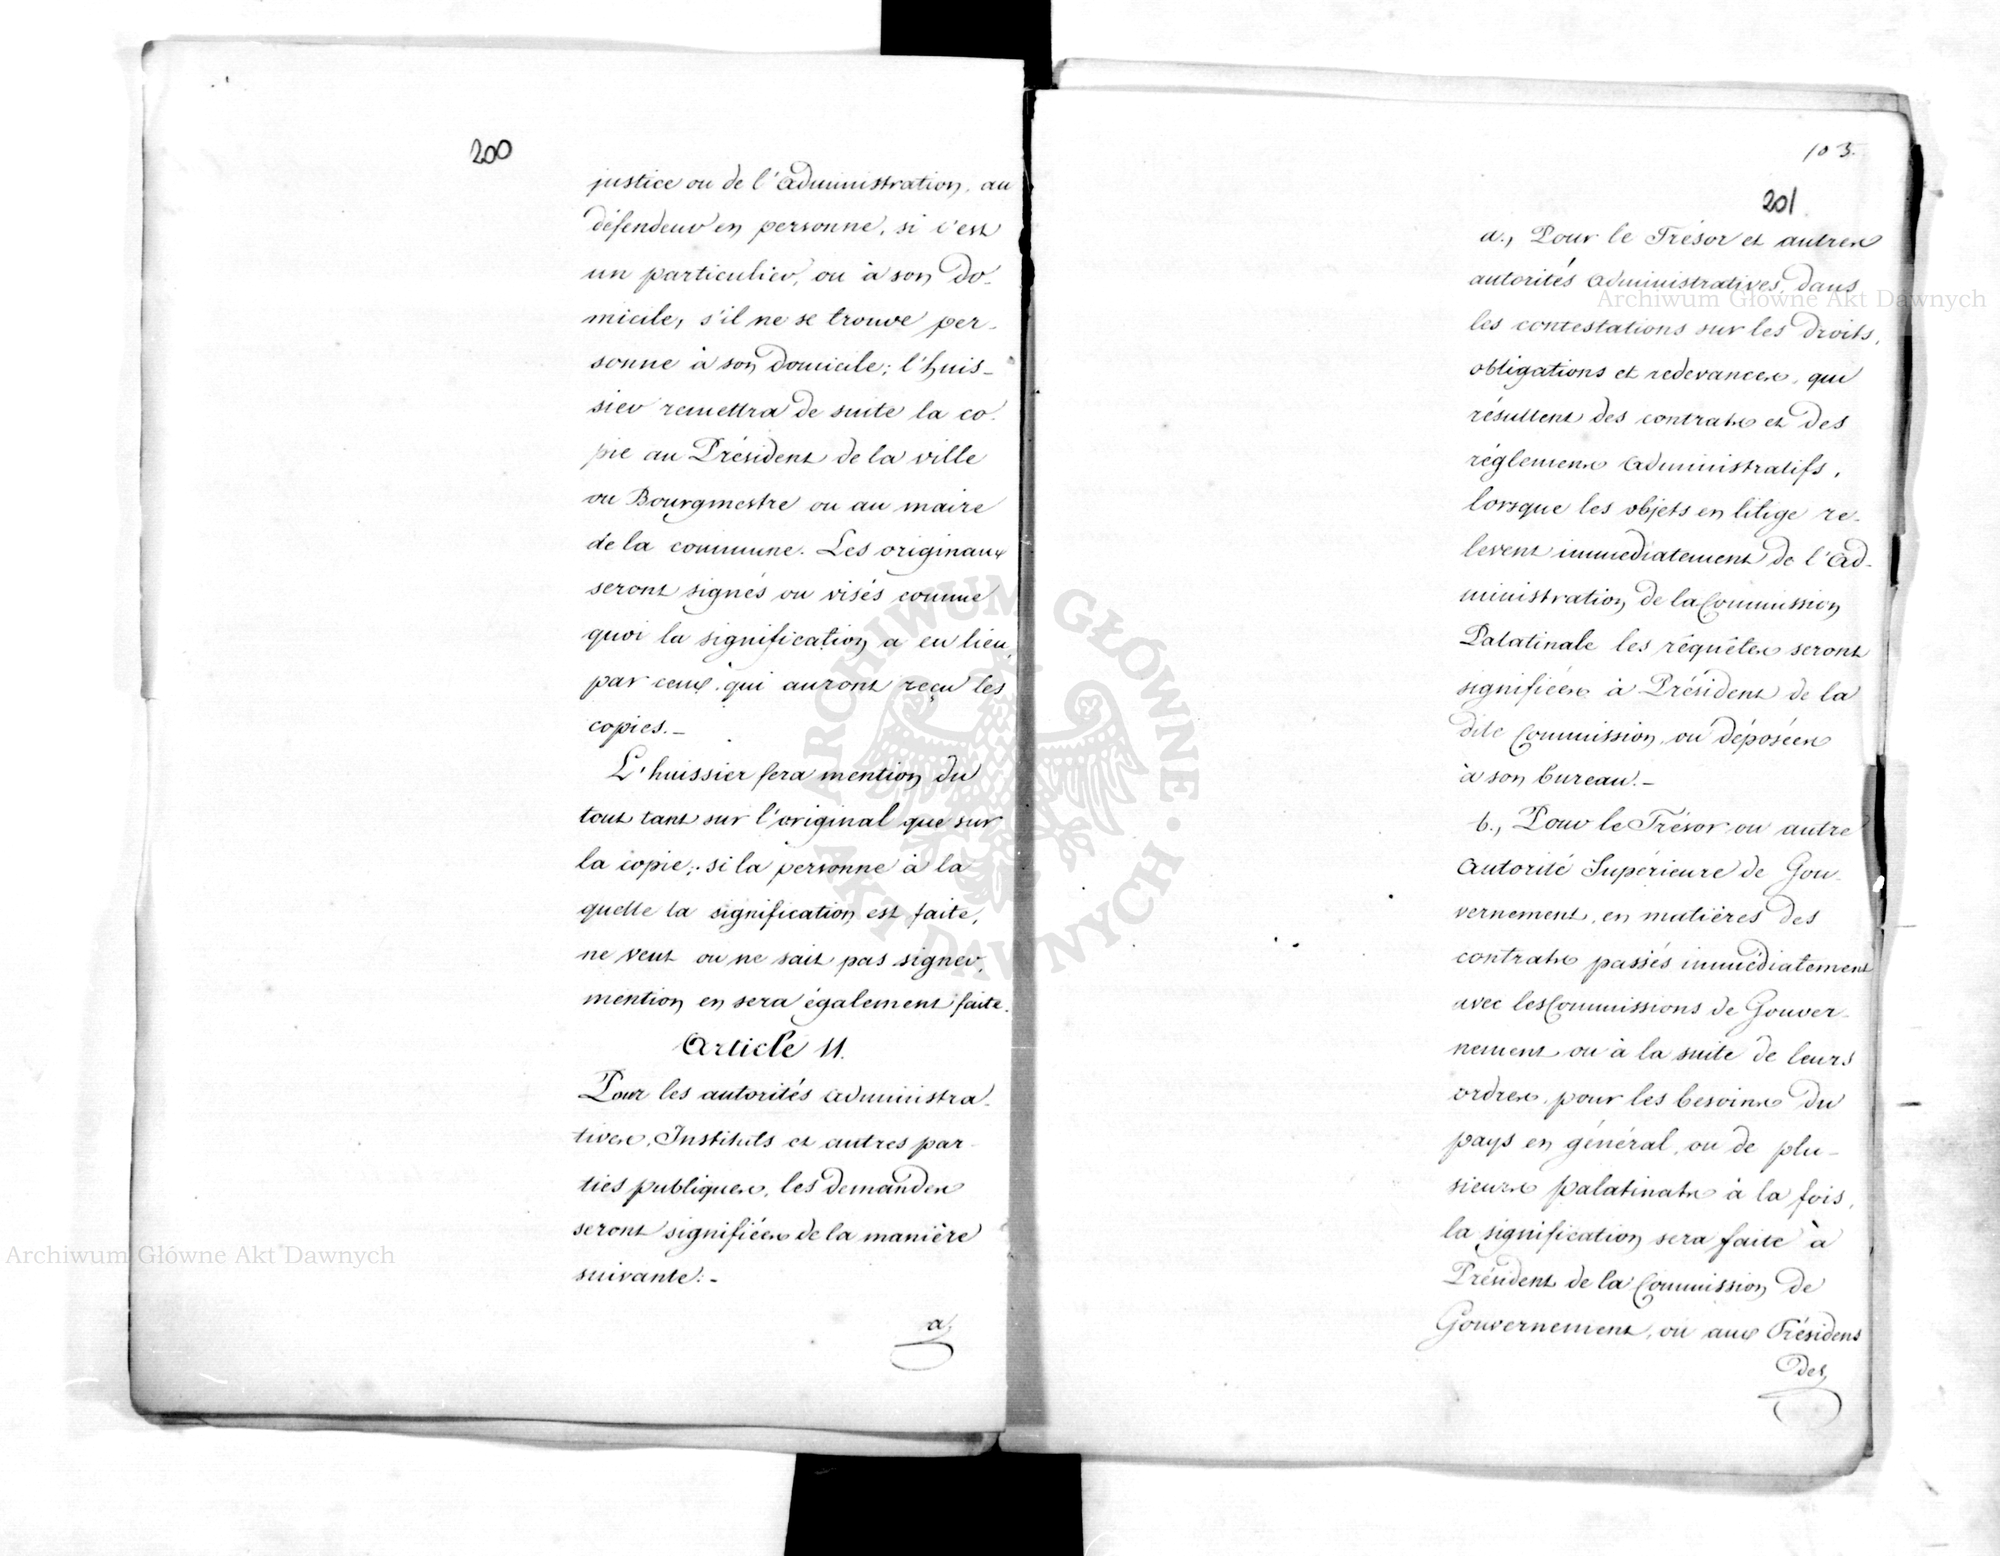 200
justice ou de l'Administration, au
défendeur en personne, si c'est
un particulier, ou à son do-
micile, s'il ne se trouve per-
sonne à son domicile; l'huis-
sier remettra de suite la co-
pie au Président de la ville
ou Bourgmestre ou au maire
de la commune. Les originaux
seront signés ou visés comme
quoi la signification a eu lieu,
par ceux qui auront reçu les
copies.-
L'huissier fera mention du
tout tant sur l'original que sur
la copie; si la personne à la
quelle la signification est faite,
ne veut ou ne sait pas signer,
mention en sera également faite.
Article 11.
Pour les autorités administra-
tives, Instituts et autres par-
ties publiques, les demandes
seront signifiées de la manière
suivante:-
a,
103.
201
a., Pour le Trésor et autres
autorités administratives, dans
les contestations sur les droits,
obligations et redevances, qui
résultent des contrats et des
réglemens administratifs,
lorsque les objets en litige re-
levent immediatement de l'Ad-
ministration de la Commission
Palatinale les réquêtes seront
signifiées à Président de la
dite Commission, ou déposées
à son bureau.-
b., Pour le Trésor ou autre
Autorité Supérieure de Gou-
vernement, en matières des
contrats passés immédiatement
avec les Commissions de Gouver-
nement ou à la suite de leurs
ordres, pour les besoins du
pays en général, ou de plu-
sieurs palatinats à la fois,
la signification sera faite à
Président de la Commission de
Gouvernement, ou aux Présidens
des,
Archiwum Główne Akt Dawnych
Archiwum Główne Akt Dawnych
ARCHIWUM GŁÓWNE AKT DAWNYCH